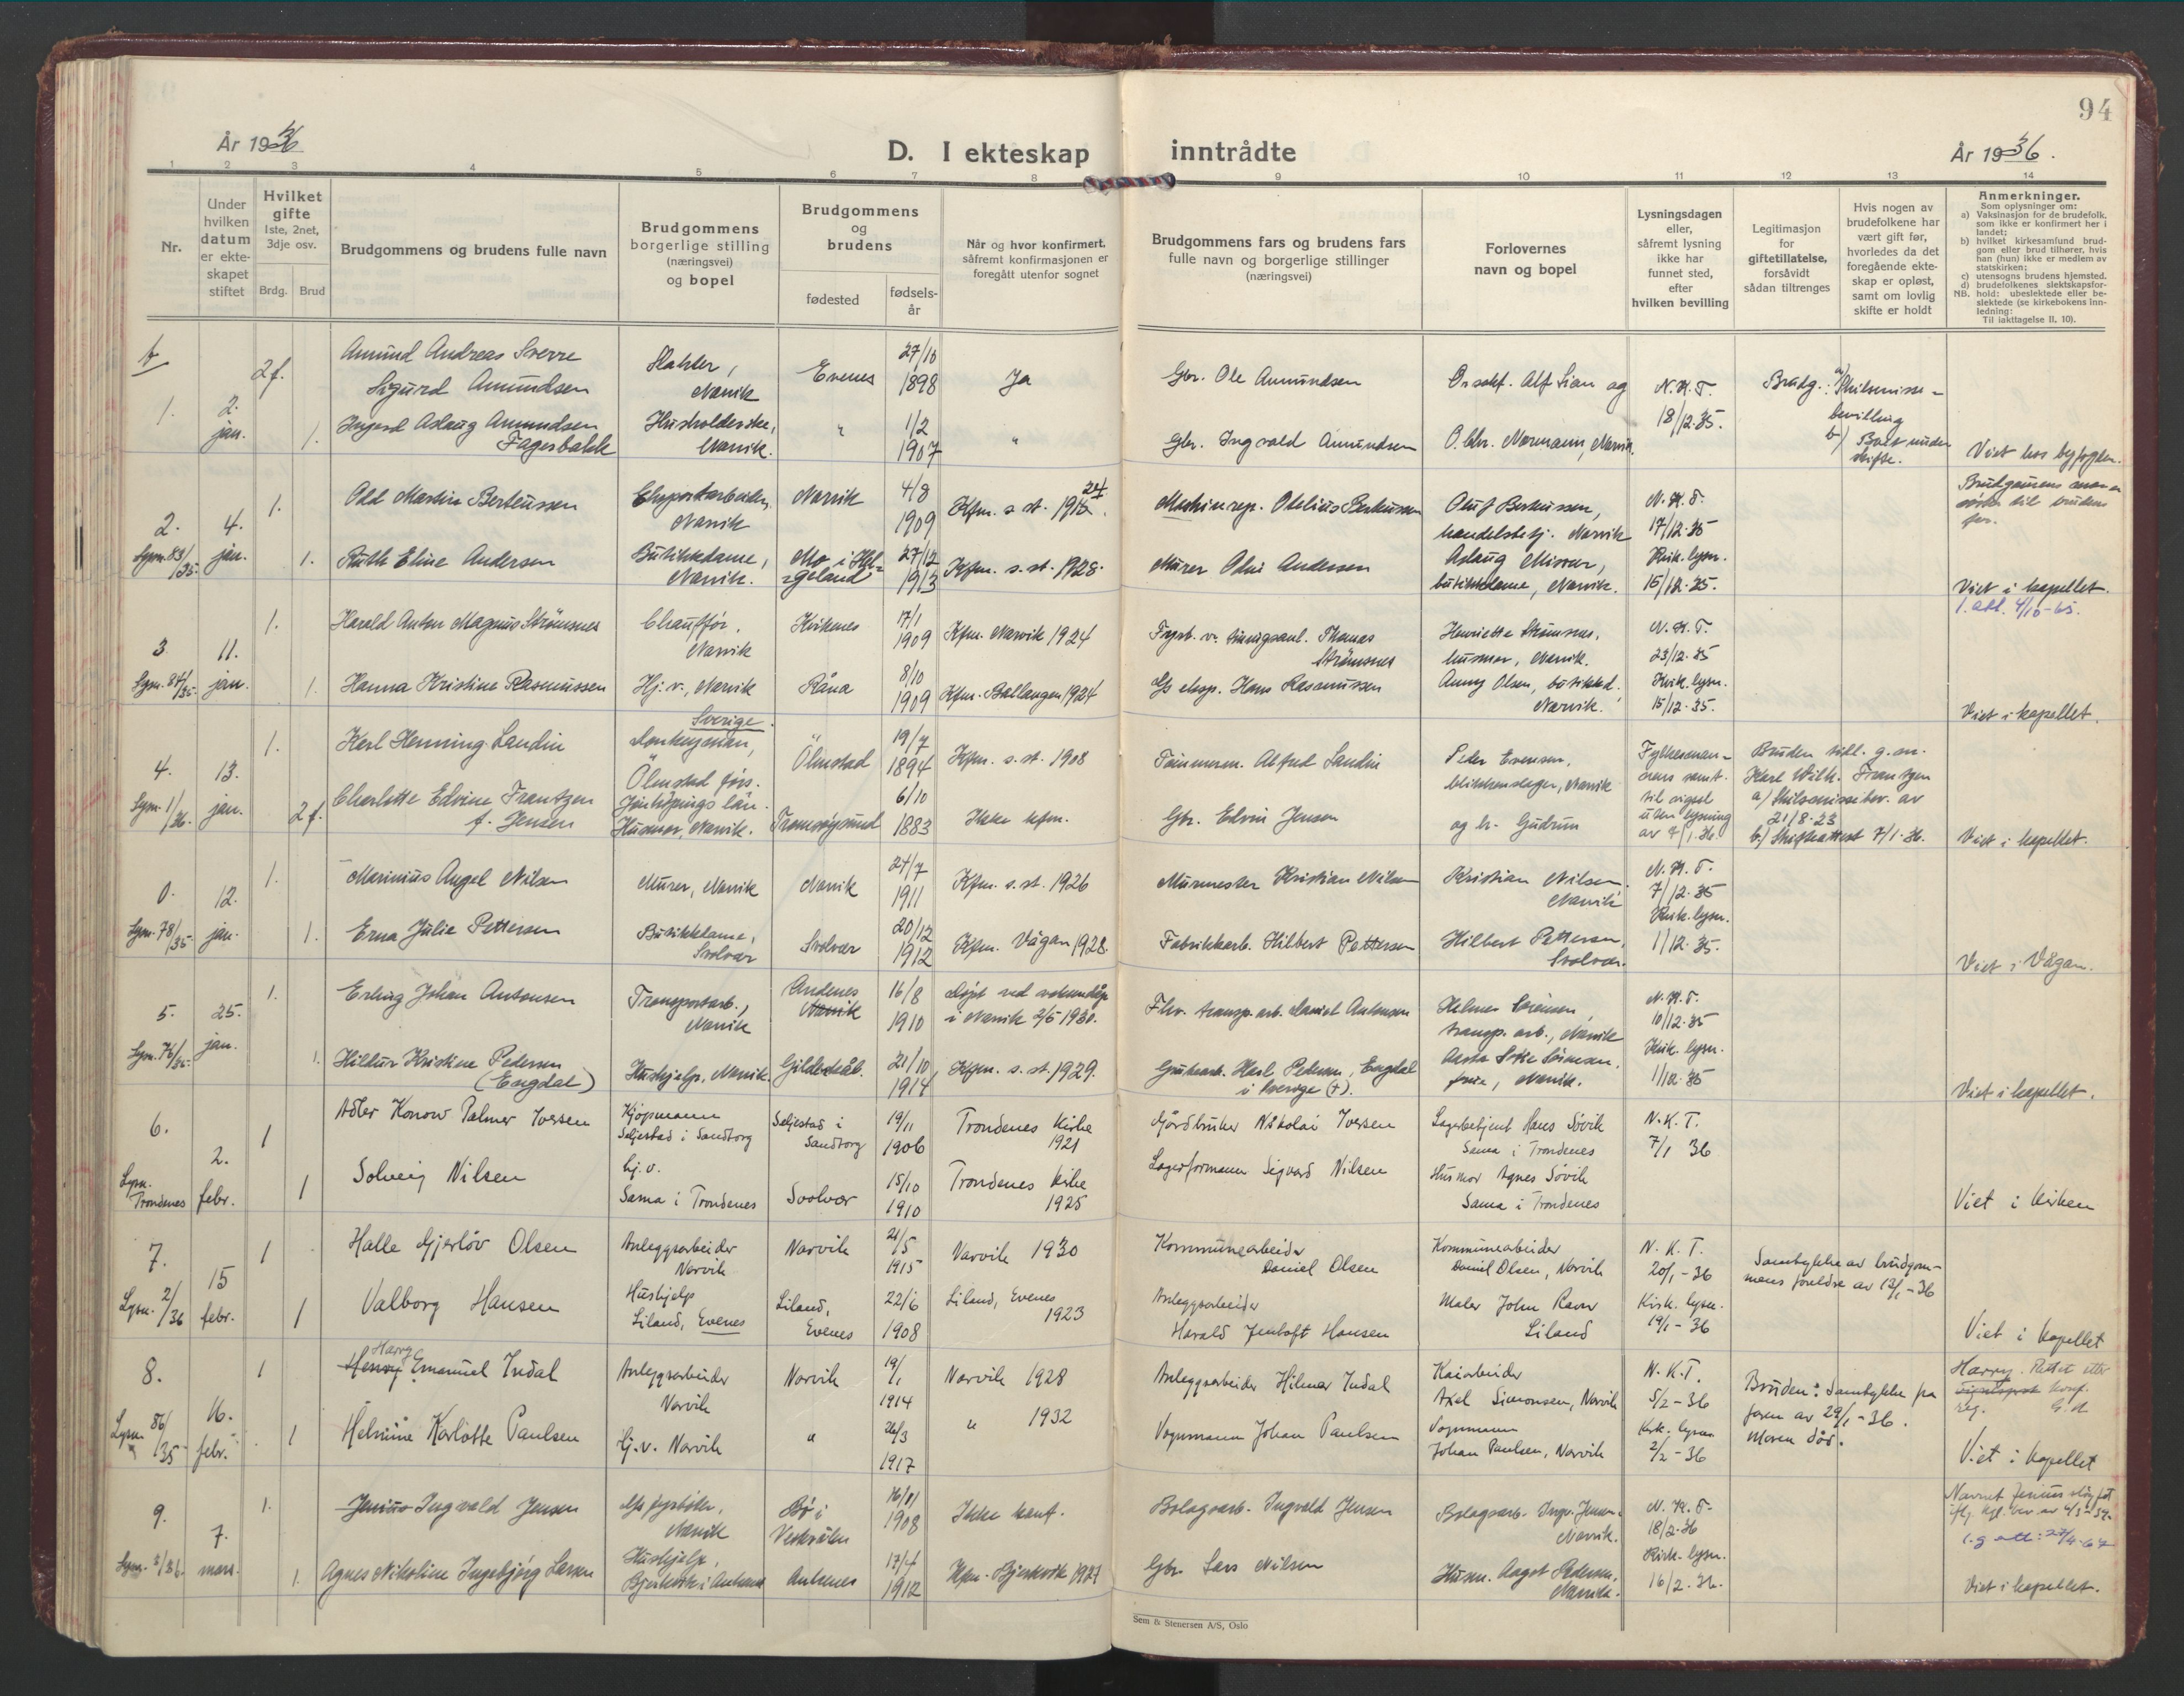 94
År 1936
D. I ekteskap inntrådte
År 1936.
1 2 3 4 5 6 7 8 9 10 11 12 13 14
Nr.
Under hvilken datum er ekteskapet stiftet
Hvilket gifte
1ste, 2net, 3dje osv.
Brdg. Brud
Brudgommens og brudens fulle navn
Brudgommens borgerlige stilling (næringsvei) og bopel
Brudgommens og brudens
fødested
fødselsår
Når og hvor konfirmert, såfremt konfirmasjonen er foregått utenfor sognet
Brudgommens fars og brudens fars fulle navn og borgerlige stillinger (næringsvei)
Forlovernes navn og bopel
Lysningsdagen eller, såfremt lysning ikke har funnet sted, efter hvilken bevilling
Legitimasjon for giftetillatelse, forsåvidt sådan tiltrenges
Hvis nogen av brudefolkene har vært gift før, hvorledes da det foregående ekteskap er opløst, samt om lovlig skifte er holdt
Anmerkninger.
Som oplysninger om:
a) Vaksinasjon for de brudefolk, som ikke er konfirmert her i landet;
b) hvilket kirkesamfund brudgom eller brud tilhører, hvis han (hun) ikke er medlem av statskirken;
c) utensogns brudens hjemsted.
d) brudefolkenes slektskapsforhold: ubeslektede eller beslektede (se kirkebokens innledning:
NB.
Til iakttagelse II, 10).
1. 2. jan.
2f. Amund Andreas Sverre Sigurd Amundsen
Slakter, Narvik
Evenes
27/10 1898
Ja
Gbr. Ole Amundsen
Alf Lian og
N.K.T. 18/12.35.
Brudg.: a) Skilsmissebevilling
b)
1. Ingerd Aslaug Amundsen Fagerbakk
Husholderske, Narvik.
"
1/2 1907
"
Gbr. Ingvald Amundsen
O. Chr. Normann, Narvik.
Viet hos byfogden.
2. Lysn. 83/35. 4. jan.
1. Odd Martin Berteussen
Eksportarbeider, Narvik
Narvik
4/8 1909
Kfm. s. st. 1924.
Maskinrep. Otelius Berteussen
Oluf Berteussen, handelsbetj. Narvik
N.K.T. 17/12.35
Brudgommens
til brudens far.
1. Ruth Eline Andersen
Butikkdame, Narvik.
Mo i Helgeland
27/12 1913
Kfm. s. st. 1928.
Murer Odin Andersen
Aslaug butikkdame, Narvik.
Kirk. lysn. 15/12.35.
Viet i kapellet.
1. att. 4/10-65.
3. 11. jan.
1. Harald Anton Magnus Strømsnes
Chauffør, Narvik
Kvitnes
17/1 1909
Kfm. Narvik 1924
Thomas Strømsnes
Henriette Strømsnes, husmor, Narvik.
N.K.T. 23/12.35
1. Hanna Kristine Rasmussen
Hj. v., Narvik
Råna
8/10 1909
Kfm. Ballangen 1924
Hans Rasmussen
Anny Olsen, butikkd. Narvik.
Kirk. lysn. 15/12.35.
Viet i kapellet.
4. Lysn. 1/36. 13. jan.
1. Karl Henning Landin
Sverige. Ölmstad Jönköpings län.
Ölmstad
19/7 1894
Kfm. s. st. 1908
Tømmerm. Alfred Landin
Peder Evensen, blikkenslager, Narvik
Fylkesmannens samt. til vigsel uten lysning
Bruden tidl. g. m. Karl Wilh. Frantzen
a) Skilsmissebev. av 21/8.23
b) Skifteattest 7/1.36.
2f. Charlotte Edvine Frantzen f. Jensen
Husmor, Narvik.
Tranøysund
6/10 1883
Ikke kfm.
Gbr. Edvin Jensen
og h. Gudrun
Viet i kapellet.
0. Lysn. 78/35. 12. jan.
1. Marinius Angel Nilsen
Murer, Narvik
Narvik
24/7 1911
Kfm. s. st. 1926
Murmester Kristian Nilsen
Kristian Nilsen, Narvik
N.K.T. 7/12.35
1. Erna Julie Pettersen
Butikkdame, Svolvær
Svolvær
20/12 1912
Kfm. Vågan 1928.
Fabrikkarb. Hilbert Pettersen
Hilbert Pettersen, Svolvær.
Kirk. lysn. 1/12.35.
Viet i Vågan.
5. 25. jan.
1. Erling Johan Antonsen
Transportarb., Narvik
Andenes Narvik
16/8 1910
Døpt ved voksendåp i Narvik 2/5 1930.
Fhv. transp. arb. Daniel Antonsen
Helmer Sørensen, transp. arb., Narvik
N.K.T. 10/12.35
1. Hildur Kristine Pedersen (Engdal)
Hushjelp, Narvik.
Gildeskål.
21/10 1914
Kfm. s. st. 1929.
Karl Pedersen, Engdal i Sverige (+).
Sørensen, frue, Narvik.
Kirk. lysn. 1/12.35
Viet i kapellet.
6. Lysn. Trondenes 2. febr.
1 Adler Konow Palmer Iversen
Kjøpmann Seljestad i Sandtorg
Seljestad i Sandtorg
19/11 1906
Trondenes Kirke 1921
Gårdbruker Nikolai Iversen
Lagerbetjent Hans Søvik Sama i Trondenes
N.K.T. 7/1 36
1 Solveig Nilsen
hj. v. Sama i Trondenes
Svolvær
15/10 1910
Trondenes kirke 1925
Lagerformann Sigvard Nilsen
Husmor Agnes Søvik Sama i Trondenes
Viet i kirken
7. Lysn. 2/36 15 febr.
1 Halle Gjerløv Olsen
Anleggsarbeider Narvik
Narvik
21/5 1915
Narvik 1930
Kommunearbeider Daniel Olsen
Kommunearbeider Daniel Olsen, Narvik
N.K.T. 20/1-36
Samtykke av brudgommens foreldre av 12/1-36
1 Valborg Hansen
Hushjelp Liland, Evenes
Liland, Evenes
22/6 1908
Liland, Evenes 1923
Anleggsarbeider Harald Jentoft Hansen
Maler John Ravn Liland
Kirk. lysn. 19/1-36
Viet i kapellet
8. Lysn. 86/35 16. febr.
1 Henry Harry Emanuel Indal
Anleggsarbeider Narvik
Narvik
19/1 1914
Narvik 1928
Anleggsarbeider Hilmar Indal
Kaiarbeider Axel Simonsen, Narvik
N.K.T. 5/2-36
Bruden: Samtykke fra faren av 29/1-36. Moren død.
Harry. Rettet etter konf. reg.
1 Helmine Karlotte Paulsen
Hj. v. Narvik
"
26/3 1917
" 1932
Vognmann Johan Paulsen
Vognmann Johan Paulsen, Narvik
Kirk. lysn. 2/2-36
Viet i kapellet
9. 7. mars.
1. Jenius Ingvald Jensen
Narvik
Bø i Vesterålen
16/11 1908
Ikke konf.
Bolagsarb. Ingvald Jensen
Bolagsarb. Ingv. Jensen, Narvik.
N.K.T. 18/2.36
Navnet Jenius sløyfet
1. Agnes Nikoline Ingebjørg Larsen
Hushjelp, Bjerkvik i Ankenes
Ankenes
17/4 1912
Kfm. Bjerkvik 1927
Gbr. Lars Nilsen
Husm. Aagot Pedersen, Narvik.
Kirk. lysn. 16/2.36.
Viet i kapellet.
Sem & Stenersen A/S, Oslo